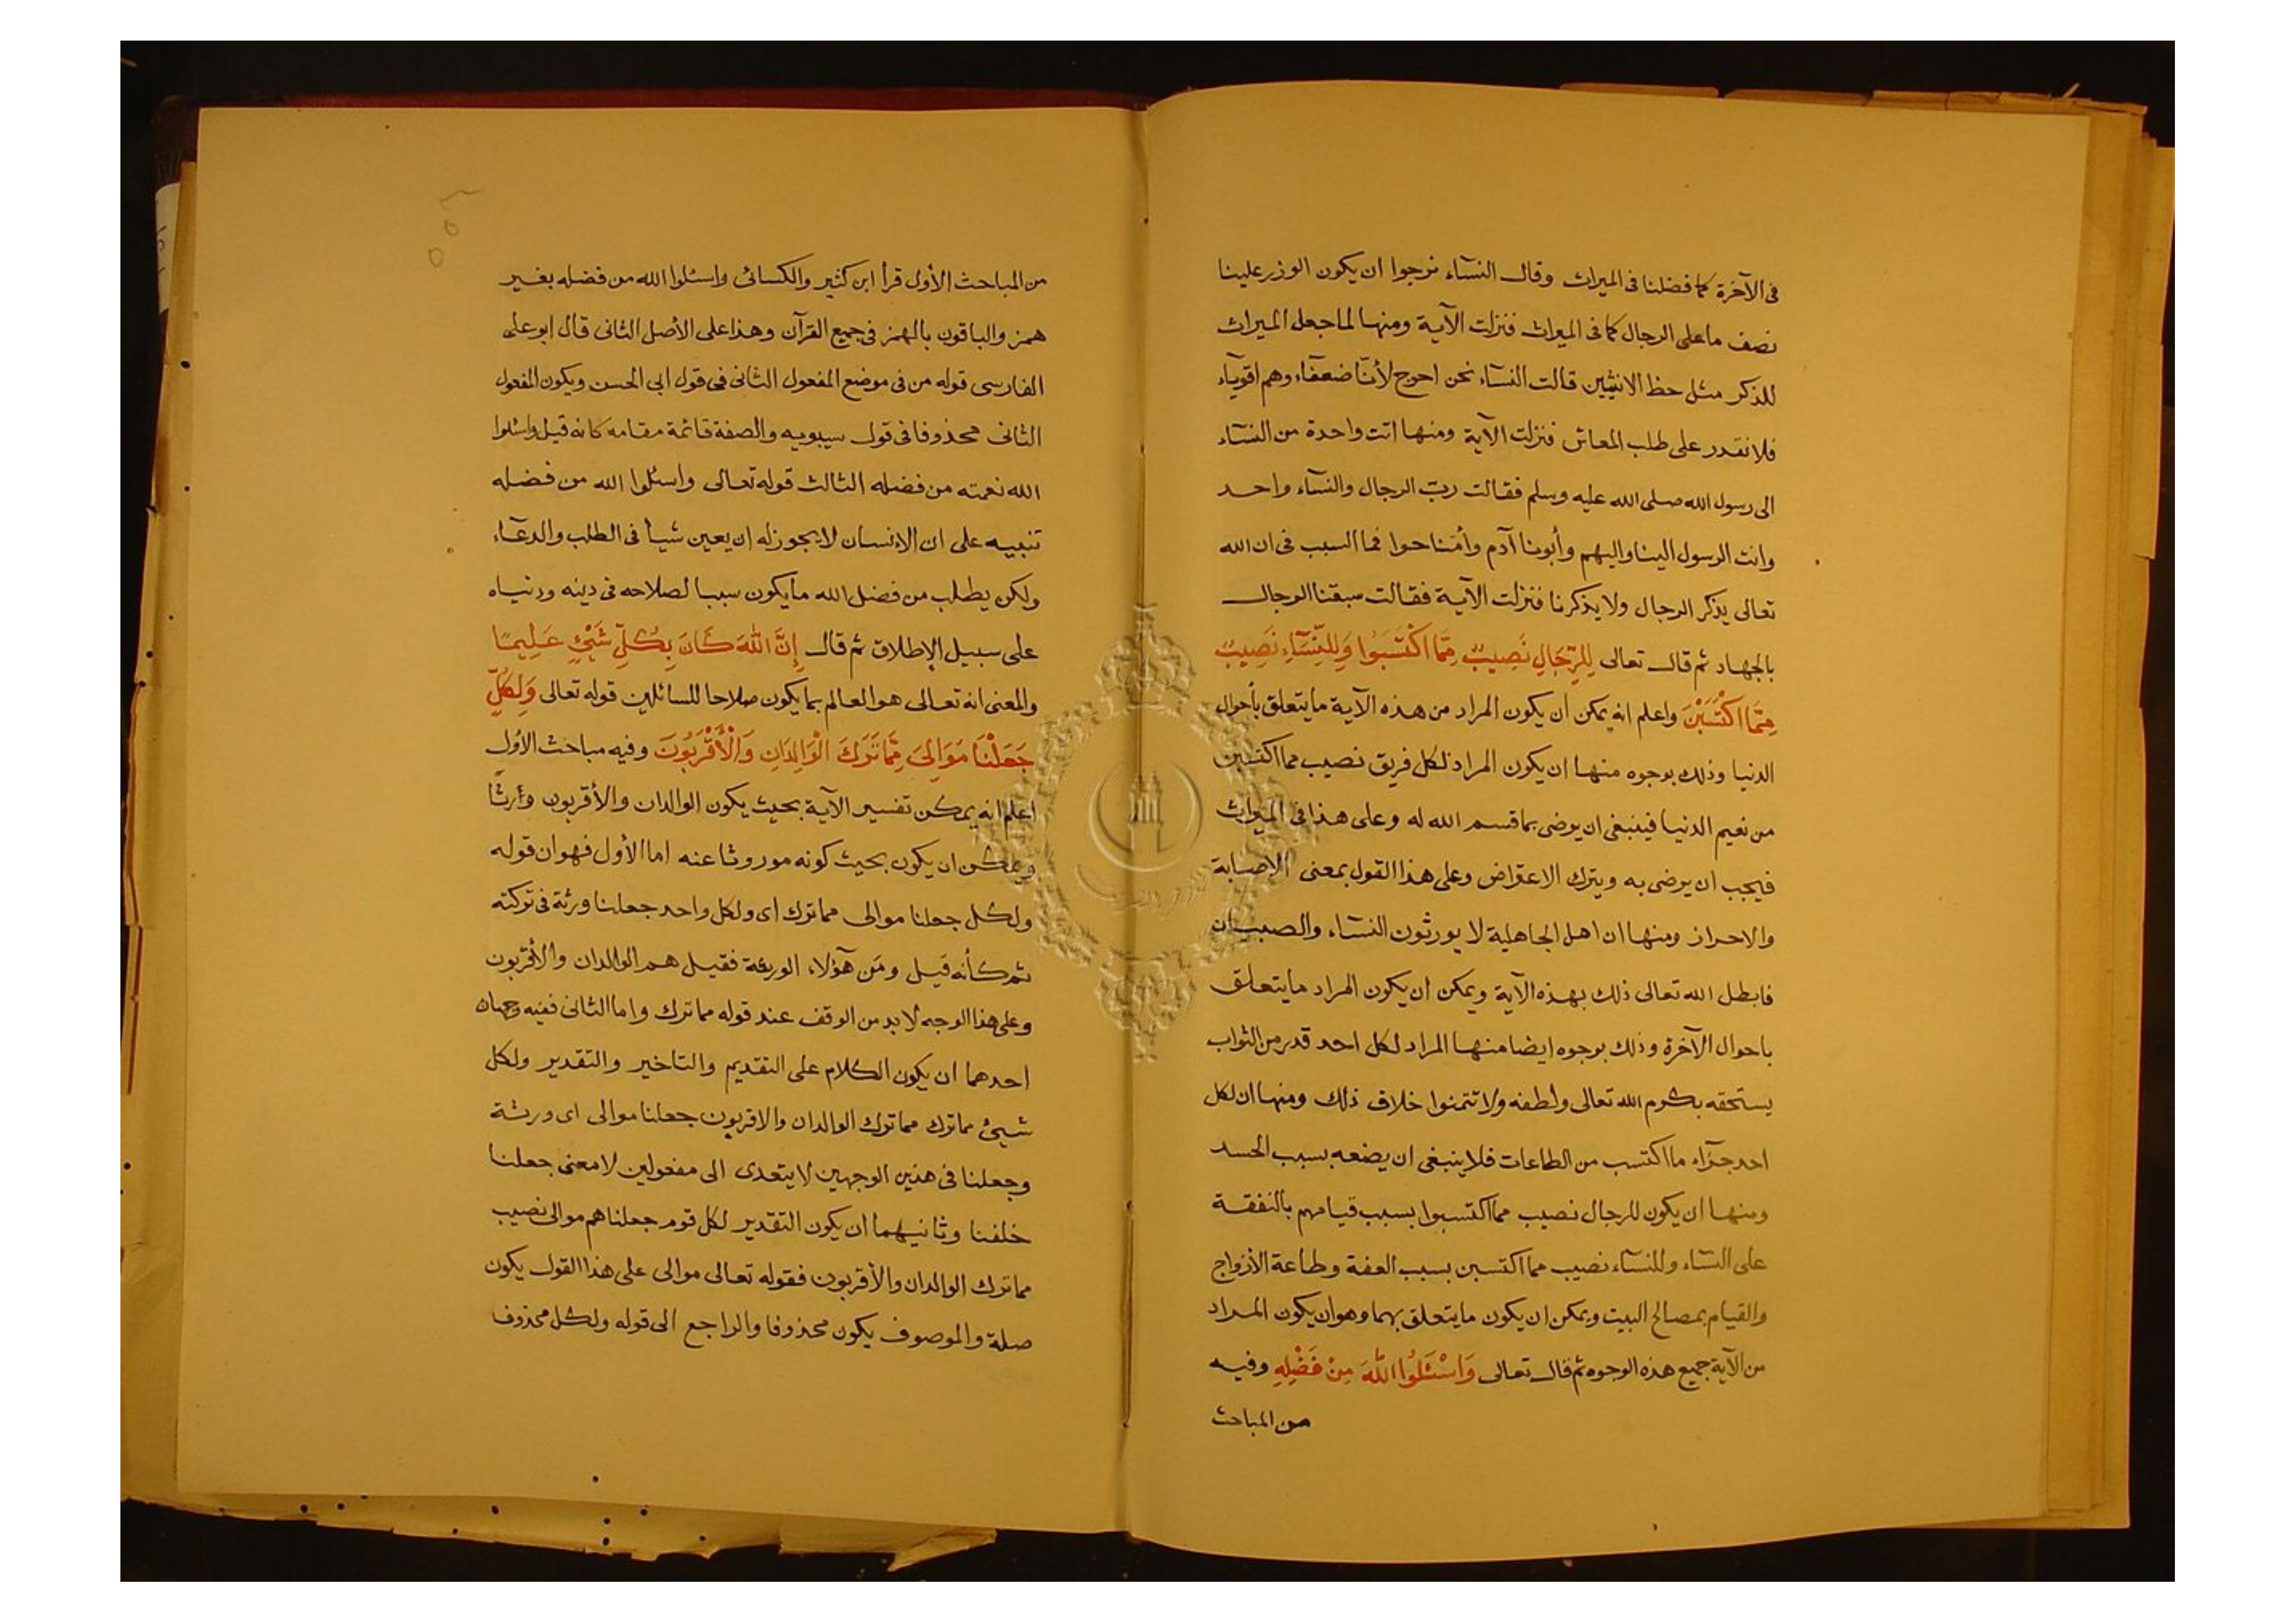 فى الآخرة كما فضلنا فى الميراث وقال النسآء نرجوا ان يكون الوزر علينا
نصف ما على الرجال كما فى الميراث فنزلت الآية ومنها لما جعل الميراث
للذكر مثل حظ الانثيين قالت النسآء نحن احوج لأنّا ضعفآء وهم اقويآء
فلا نقدر على طلب المعاش فنزلت الآية ومنها اتت واحدة من النسآء
الى رسول الله صلى الله عليه وسلم فقالت ربّ الرجال والنسآء واحد
وانت الرسول الينا واليهم وأبونا آدم وأمّنا حوا فما السبب فى ان الله
تعالى يذكر الرجال ولا يذكرنا فنزلت الآية فقالت سبقنا الرجال
بالجهاد ثم قال تعالى لِلرِّجَالِ نَصِيبٌ مِّمَّا اكْتَسَبُوا وَلِلنِّسَآءِ نَصِيبٌ
مِّمَّا اكْتَسَبْنَ واعلم انه يمكن ان يكون المراد من هذه الآية ما يتعلق بأحوال
الدنيا وذلك بوجوه منها ان يكون المراد لكل فريق نصيب مما اكتسبن
من نعيم الدنيا فينبغى ان يرضى بما قسم الله له وعلى هذا فى الميراث
فيجب ان يرضى به ويترك الاعتراض وعلى هذا القول بمعنى الاصابة
والاحراز ومنها ان اهل الجاهلية لا يورثون النسآء والصبيان
فابطل الله تعالى ذلك بهذه الآية ويمكن ان يكون المراد ما يتعلق
باحوال الآخرة وذلك بوجوه ايضا منها المراد لكل احد قدر من الثواب
يستحقه بكرم الله تعالى ولطفه ولا تتمنوا خلاف ذلك ومنها ان لكل
احد جزآء ما اكتسب من الطاعات فلا ينبغى ان يضعه بسبب الحسد
ومنها ان يكون للرجال نصيب مما اكتسبوا بسبب قيامهم بالنفقة
على النسآء وللنسآء نصيب مما اكتسبن بسبب العفة وطاعة الأزواج
والقيام بمصالح البيت ويمكن ان يكون ما يتعلق بهما وهو ان يكون المراد
من الآية جميع هذه الوجوه ثم قال تعالى وَاسْئَلُوا اللّٰهَ مِنْ فَضْلِهِ وفيه
من المباحث
من المباحث الأول قرأ ابن كثير والكسائى واسئلوا الله من فضله بغير
همز والباقون بالهمز فى جميع القرآن وهذا على الأصل الثانى قال ابو على
الفارسى قوله من فى موضع المفعول الثانى فى قول ابى الحسن ويكون المفعول
الثانى محذوفا فى قول سيبويه والصفة قائمة مقامه كانه قيل واسئلوا
الله نعمته من فضله الثالث قوله تعالى واسئلوا الله من فضله
تنبيه على ان الانسان لا يجوز له ان يعين شيأ فى الطلب والدعآء
ولكن يطلب من فضل الله ما يكون سببا لصلاحه فى دينه ودنياه
على سبيل الإطلاق ثم قال إِنَّ اللّٰهَ كَانَ بِكُلِّ شَيْئٍ عَلِيمًا
والمعنى انه تعالى هو العالم بما يكون صلاحا للسائلين قوله تعالى وَلِكُلٍّ
جَعَلْنَا مَوَالِىَ مِمَّا تَرَكَ الْوَالِدَانِ وَالْأَقْرَبُونَ وفيه مباحث الأول
اعلم انه يمكن تفسير الآية بحيث يكون الوالدان والأقربون وارثًا
ويمكن ان يكون بحيث كونه موروثا عنه اما الأول فهو ان قوله
ولكل جعلنا موالى مما ترك اى ولكل واحد جعلنا ورثة فى تركته
ثم كأنه قيل ومَن هؤلاء الورثة فقيل هم الوالدان والأقربون
وعلى هذا الوجه لا بد من الوقف عند قوله مما ترك واما الثانى ففيه وجهان
احدهما ان يكون الكلام على التقديم والتاخير والتقدير ولكل
شيئ مما ترك مما ترك الوالدان والاقربون جعلنا موالى اى ورثة
وجعلنا فى هذين الوجهين لا يتعدى الى مفعولين لا معنى جعلنا
خلفنا وثانيهما ان يكون التقدير لكل قوم جعلناهم موالى نصيب
مما ترك الوالدان والأقربون فقوله تعالى موالى على هذا القول يكون
صلة والموصوف يكون محذوفا والراجع الى قوله ولكل محذوف